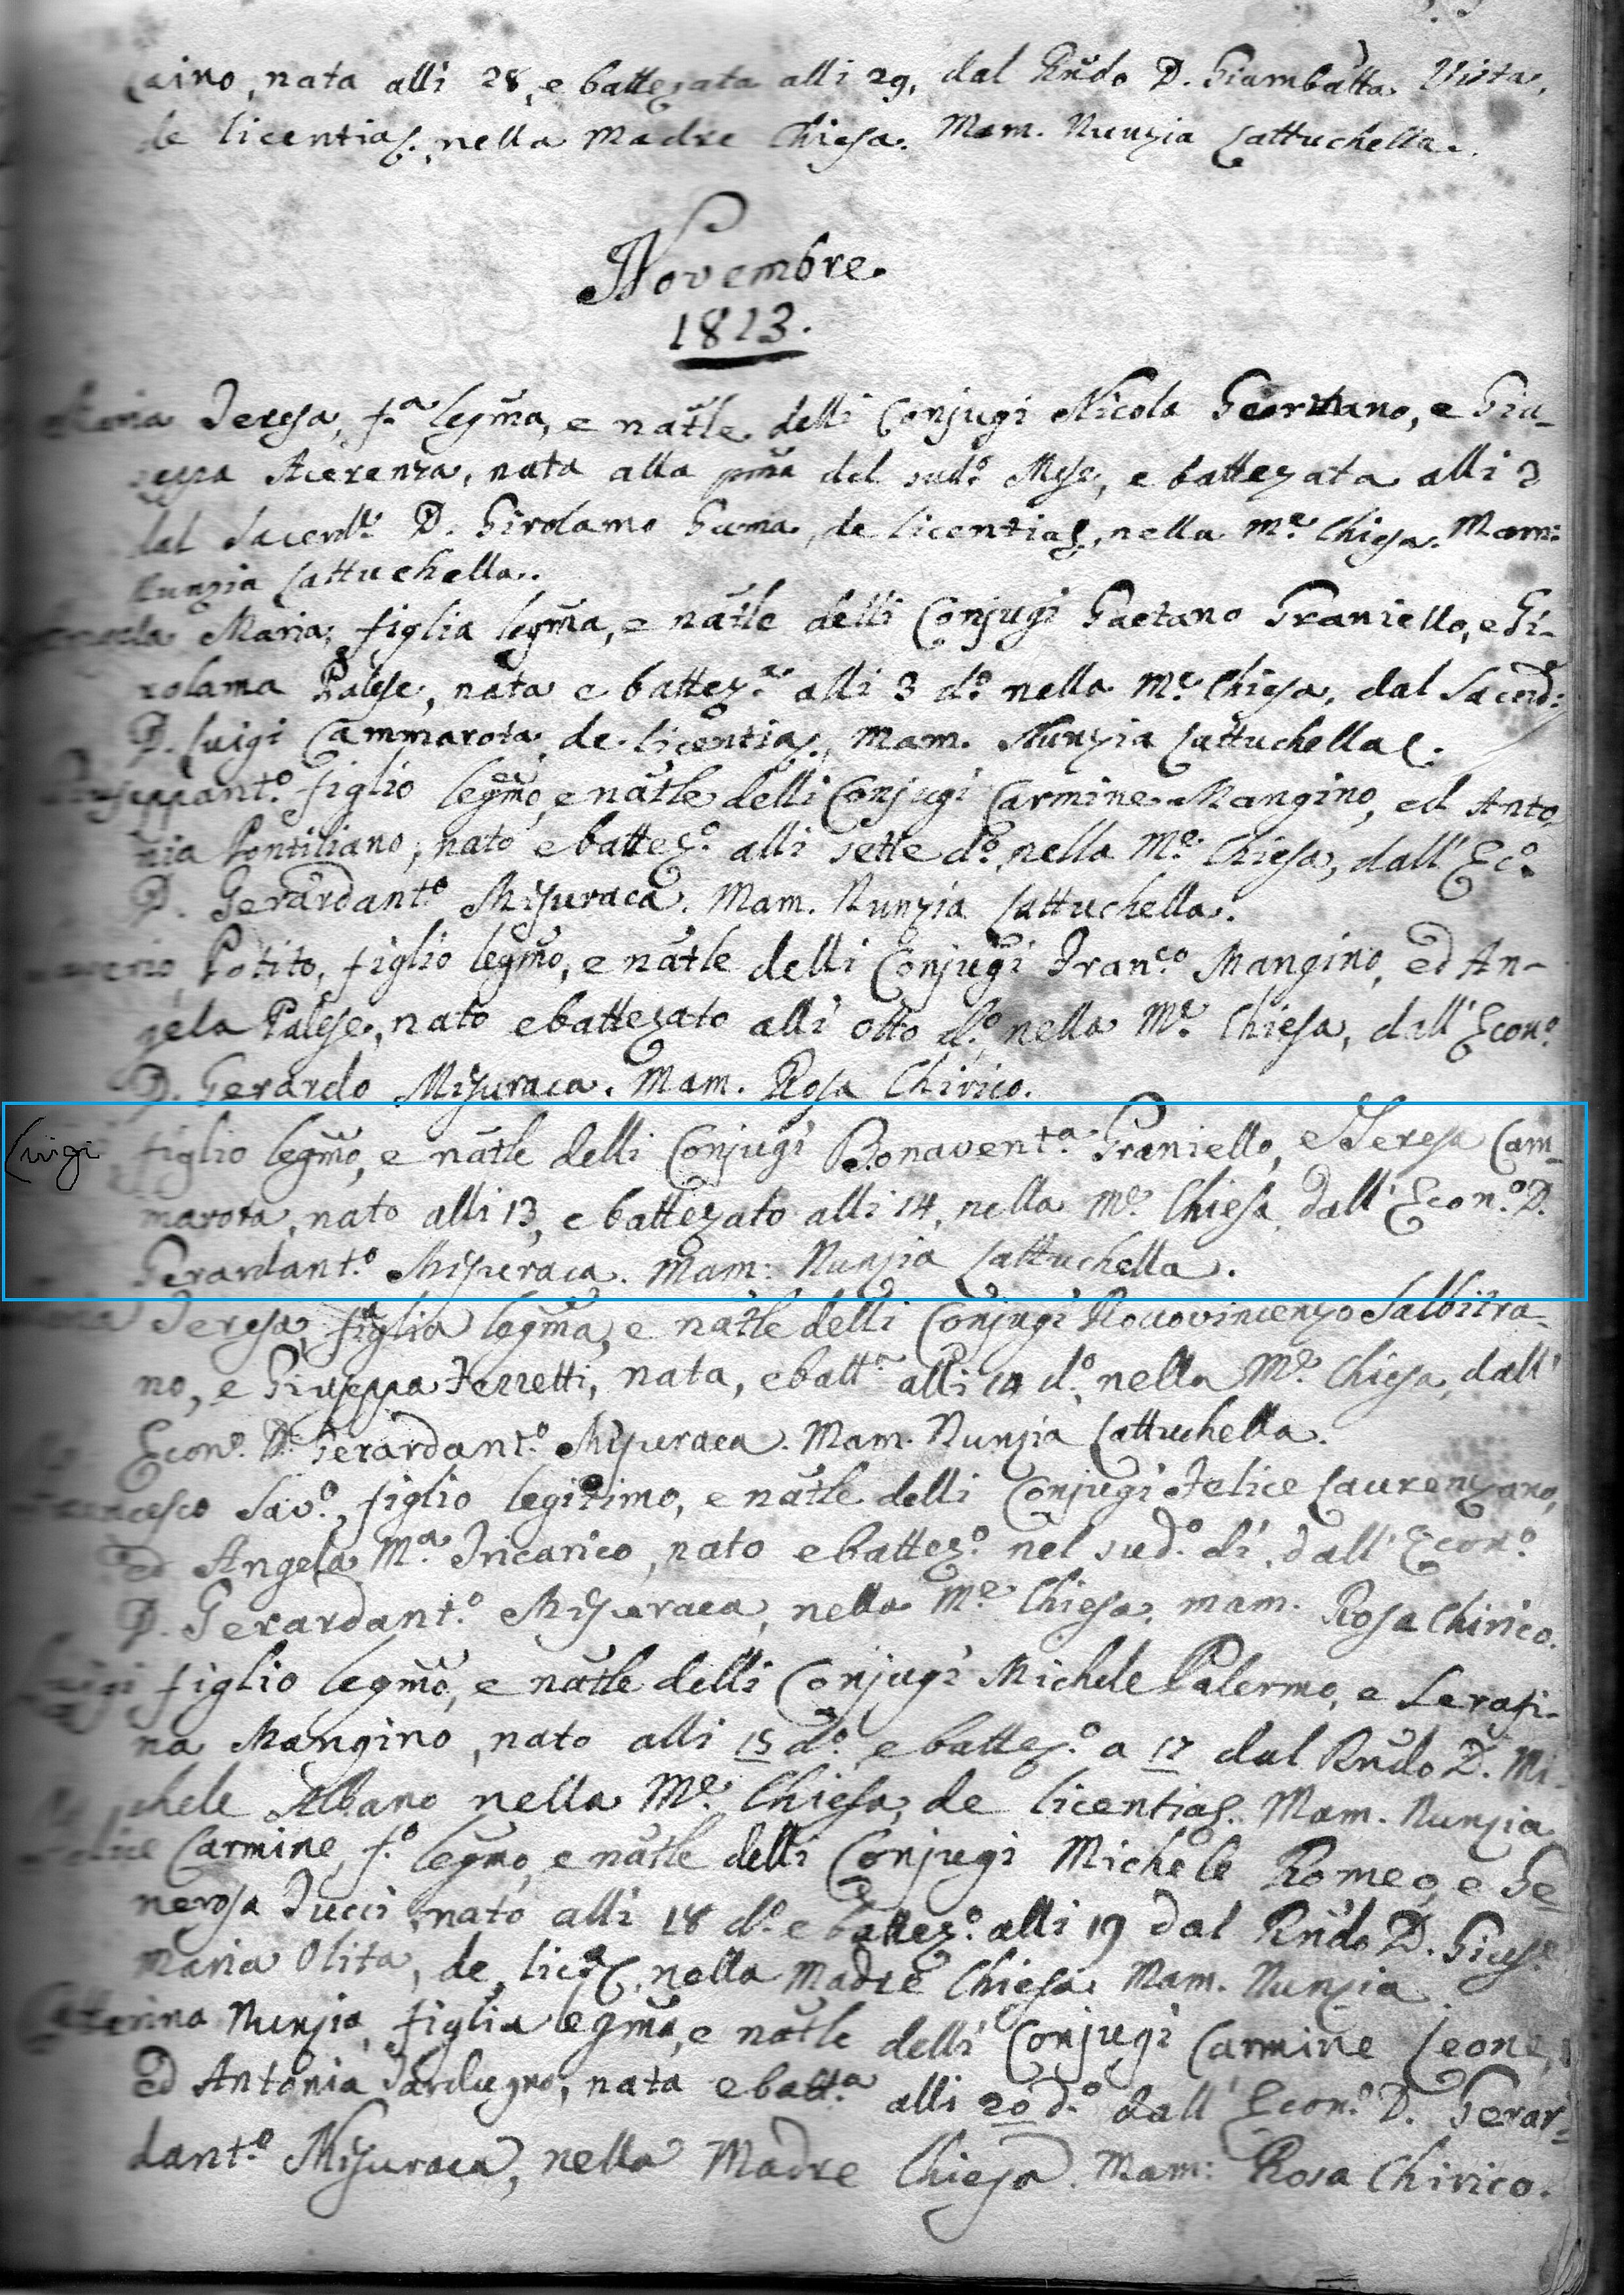 nata alli 28, e battezata alli 29, dal Rñdo D. Giambatta Vista,
de licentia S. nella Madre Chiesa. Mam. Nunzia Lattuchella.
Novembre
1813.
Maria Teresa, f.ª legm̃a, e nat̃le delli Conjugi Nicola e Giu-
Acerenza, nata alla pm̃a del sud.º Mese, e battezata alli 3
dal Sacerd.e D. Girolamo Guma, de licentia S. nella M.e Chiesa. Mam:
Nunzia Lattuchella..
Angela Maria, figlia legm̃a, e nat̃le delli Conjugi Gaetano Graniello, e Gi-
rolama Palese, nata e battez.ª alli 3 d.º nella M.e Chiesa, dal Sacerd:
D. Luigi Cammarota de licentia S., Mam. Nunzia Lattuchella.
Giuseppant.º figlio legm̃o, e nat̃le delli Conjugi Carmine Mangino, ed Anto
nia Pontiliano, nato e battez.º alli sette d.º nella M.e Chiesa, dall' Ec.º
D. Gerardant.º Misuraca. Mam. Nunzia Lattuchella.
Saverio Potito, figlio legm̃o, e nat̃le delli Conjugi Fran.co Mangino, ed An-
gela Palese, nato e battezato alli otto d.º nella M.e Chiesa, dall' Econ.º
D. Gerardo Misuraca. Mam. Rosa Chirico.
Luigi figlio legm̃o, e nat̃le delli Conjugi Bonavent.ª Graniello, e Teresa Cam-
marota, nato alli 13, e battezato alli 14, nella M.e Chiesa dall' Econ.º D.
Gerardant.º Misuraca. Mam: Nunzia Lattuchella.
Maria Teresa, figlia legm̃a, e nat̃le delli Conjugi Roccovincenzo Salbitra-
no, e Giuseppa Ferretti, nata, e batt.ª alli 14 d.º, nella M.e Chiesa, dall'
Econ.º D. Gerardant.º Misuraca. Mam. Nunzia Lattuchella.
Francesco Sav.º, figlio legitimo, e nat̃le delli Conjugi Felice Laurenzano,
ed Angela M.ª Incarico, nato e battez.º nel sud.º dì, dall' Econ.º
D. Gerardant.º Misuraca, nella M.e Chiesa. mam. Rosa Chirico.
Luigi figlio legm̃o, e nat̃le delli Conjugi Michele Palermo, e Serafi-
na Mangino, nato alli 15 d.º e battez.º a 17 dal Rñdo D. Mi-
chele Albano nella M.e Chiesa, de licentia S. Mam. Nunzia
Felice Carmine, f.º legm̃o, e nat̃le delli Conjugi Michele Romeo, e Ge
nerosa Tucci, nato alli 18 d.º e battez.º alli 19 dal Rñdo D. Gius.e
Maria Olita, de lic.ª S. nella Madre Chiesa. Mam. Nunzia
Catterina Nunzia, figlia legm̃a, e nat̃le delli Conjugi Carmine Leone,
ed Antonia Sardugno, nata e batt.ª alli 20 d.º dall' Econ.º D. Gerar-
dant.º Misuraca, nella Madre Chiesa. Mam: Rosa Chirico.